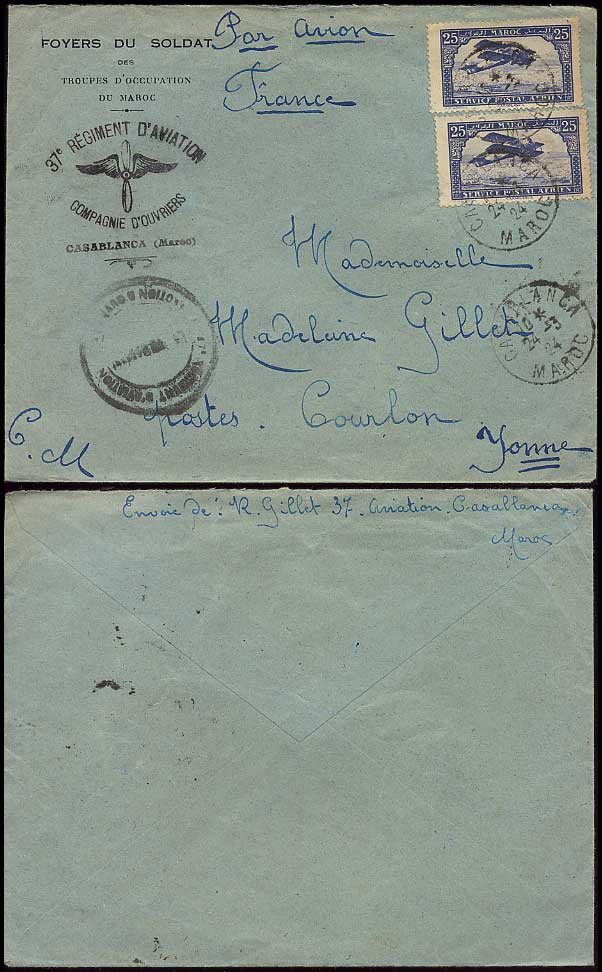 FOYERS DU SOLDAT
DES
TROUPES D'OCCUPATION
DU MAROC
37e RÉGIMENT D'AVIATION
COMPAGNIE D'OUVRIERS
CASABLANCA (Maroc)
Par Avion
France
25 MAROC 25
SERVICE POSTAL AÉRIEN
25 MAROC 25
SERVICE POSTAL AÉRIEN
24
24
MAROC
Mademoiselle
Madeleine Gillet
CASABLANCA
24 -3
24
MAROC
RÉGIMENT D'AVIATION
postes. Courlon
C. M
Yonne
Envoie de : R. Gillet 37. Aviation. Casablanca
Maroc